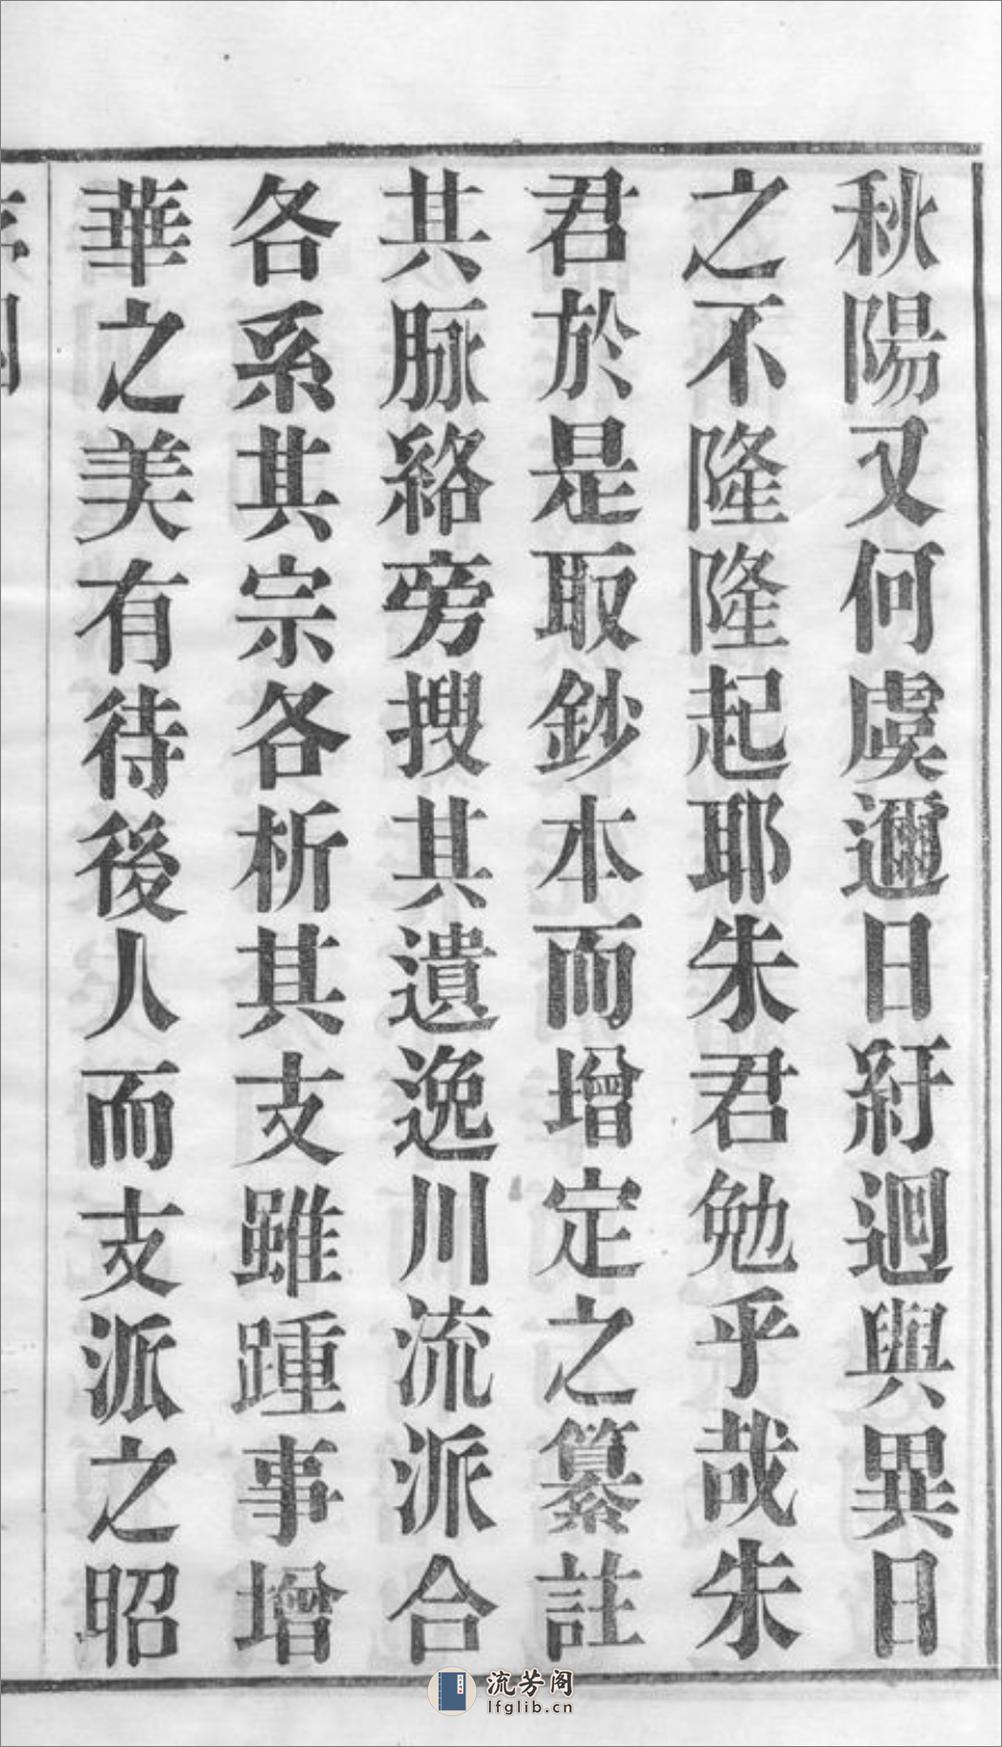 秋陽又何虞邇日紆迴與異日
之不隆隆起耶朱君勉乎哉朱
君於是取鈔本而增定之纂註
其脉絡旁搜其遺逸川流派合
各系其宗各析其支雖踵事增
華之美有待後人而支派之昭
流芳阁
lfglib.cn